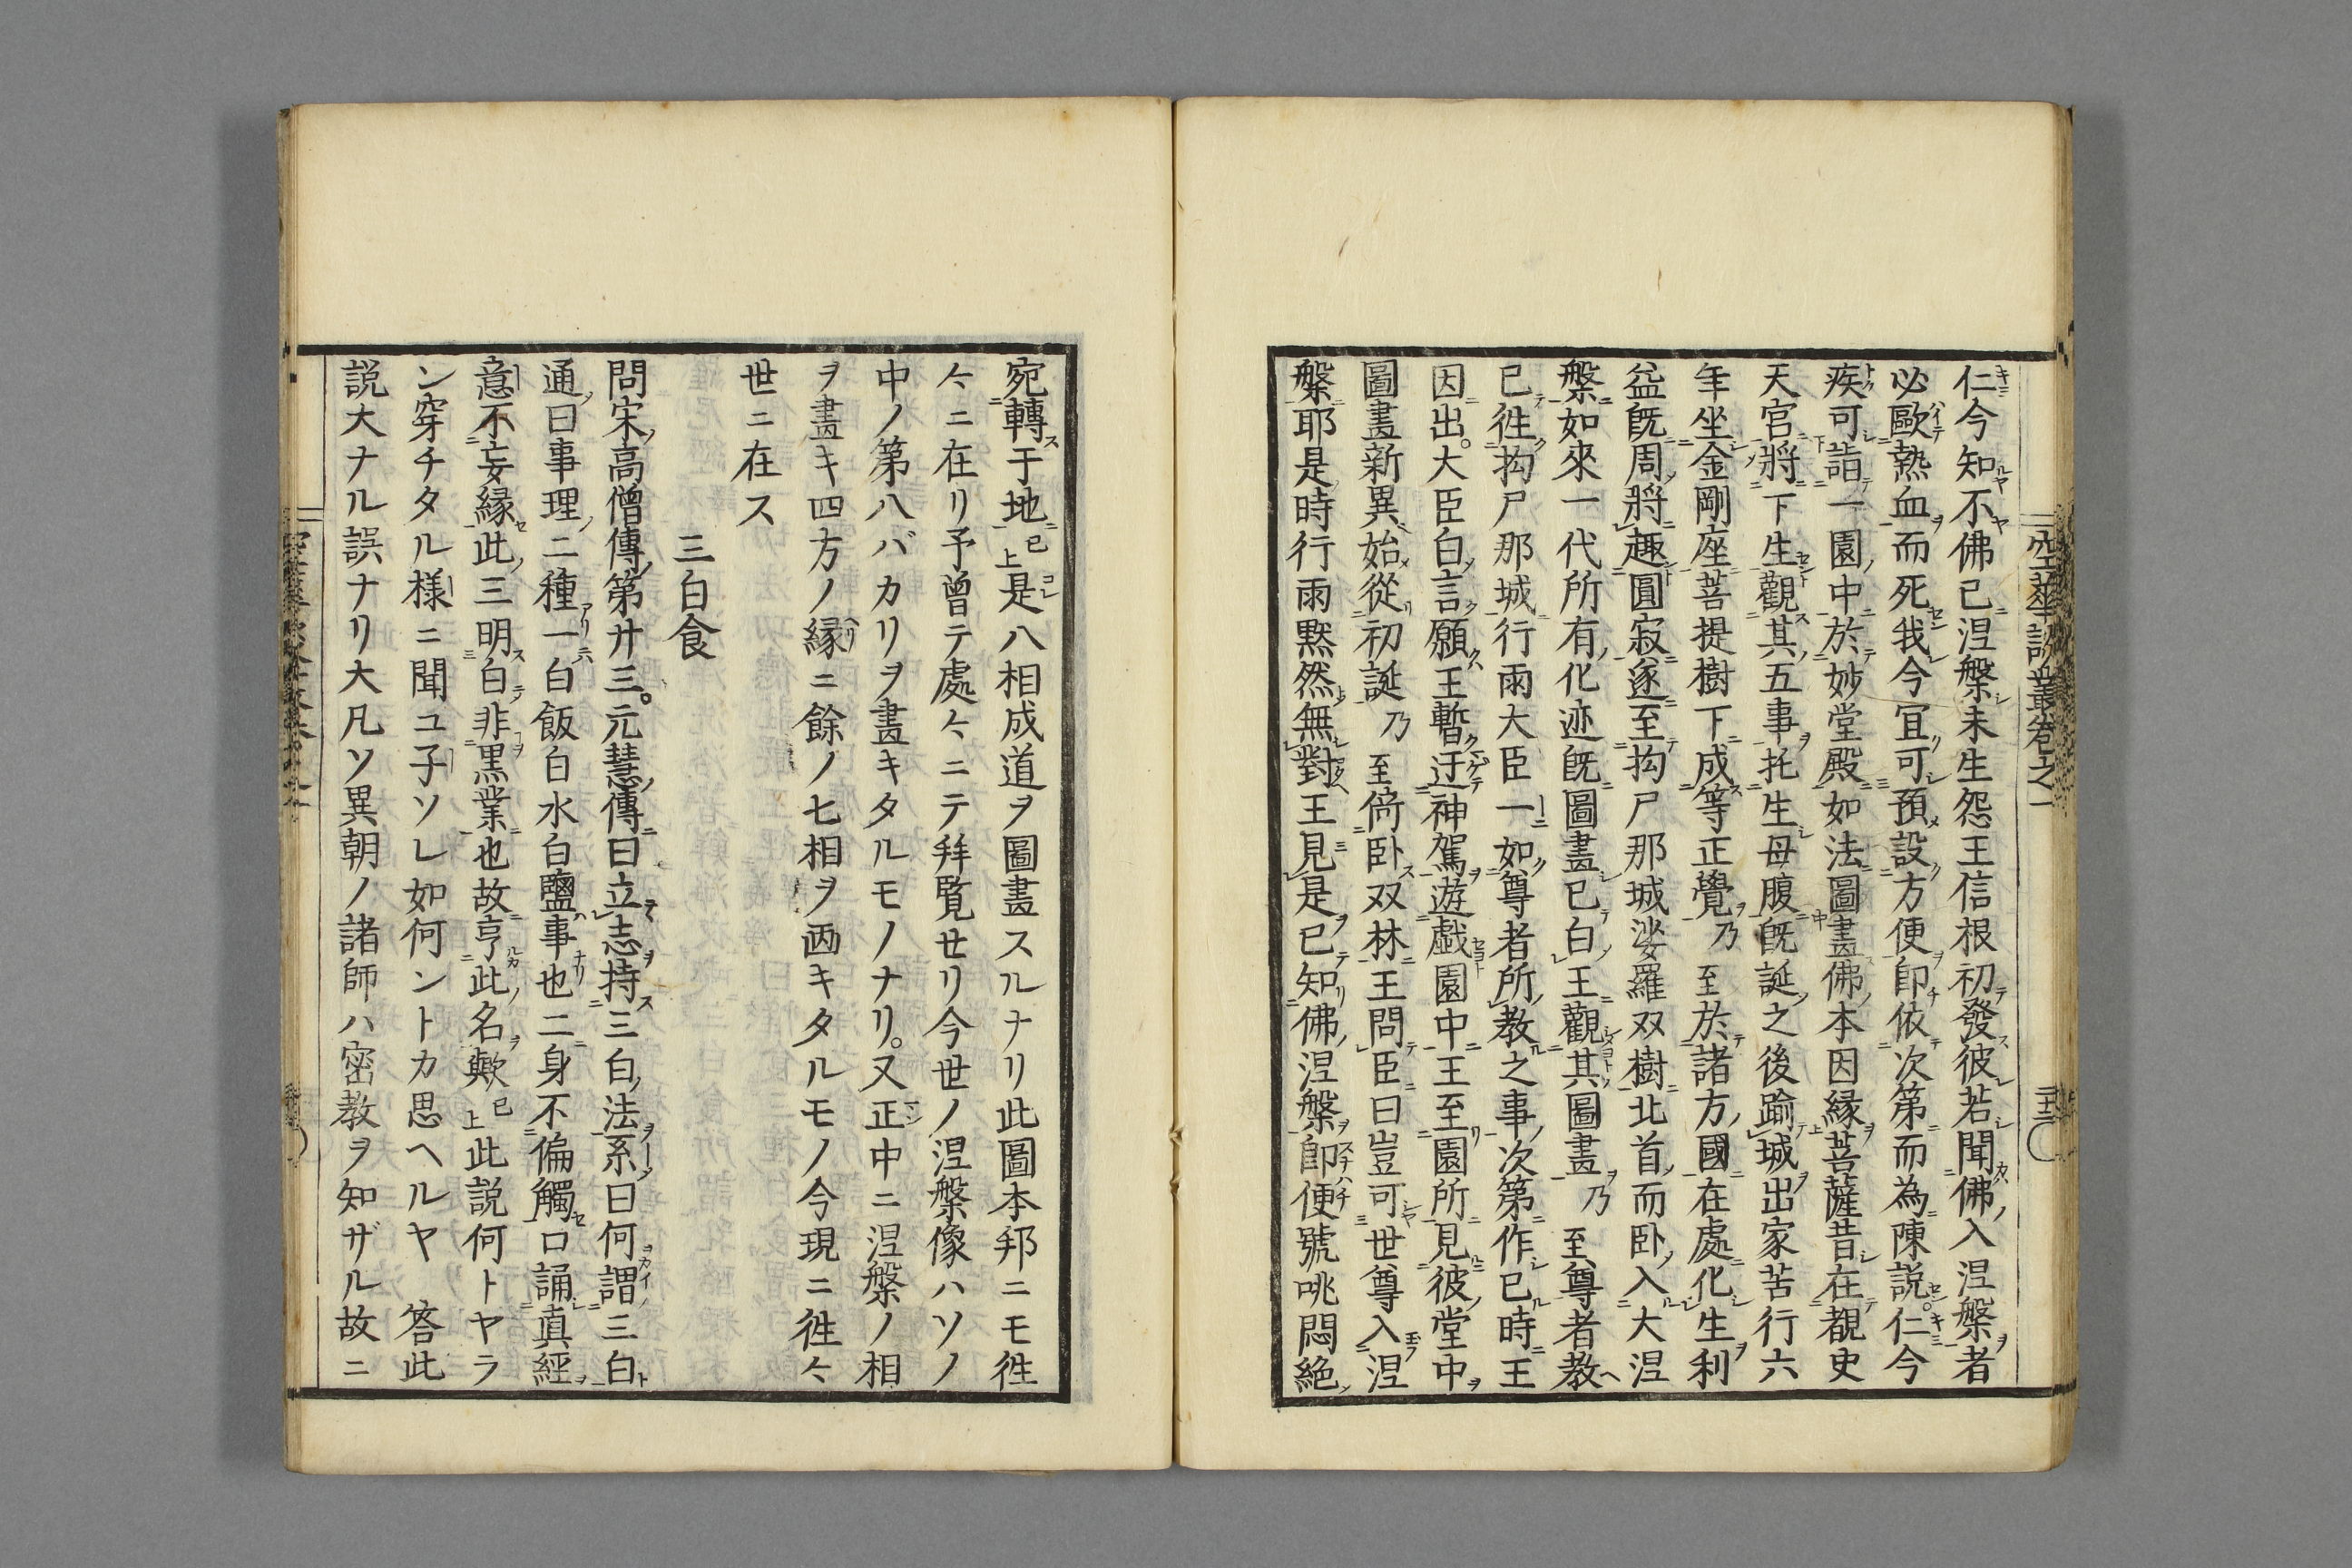 仁今知不佛已涅槃未生怨王信根初發彼若聞佛入涅槃者
必歐熱血而死我今宜可預設方便即依次第而為陳說。仁今
疾可詣一園中於妙堂殿如法圖畫佛本因緣菩薩昔在覩史
天宮將下生觀其五事托生母腹既誕之後踰城出家苦行六
年坐金剛座菩提樹下成等正覺乃至於諸方國在處化生利
益既周將趣圓寂遂至拘尸那城娑羅双樹北首而臥入大涅
槃如來一代所有化迹既圖畫已白王觀其圖畫乃至尊者教
已徃拘尸那城行雨大臣一如尊者所教之事次第作已時王
因出。大臣白言願王暫迂神駕遊戲園中王至園所見彼堂中
圖畫新異始從初誕乃至倚臥双林王問臣曰豈可世尊入涅
槃耶是時行雨黙然無對王見是已知佛涅槃即便號咷悶絕
空華談叢卷之一
宛轉于地已上是八相成道ヲ圖畫スルナリ此圖本邦ニモ徃
々ニ在リ予曾テ處々ニテ拜覽セリ今世ノ涅槃像ハソノ
中ノ第八バカリヲ畫キタルモノナリ。又正中ニ涅槃ノ相
ヲ畫キ四方ノ緣ニ餘ノ七相ヲ画キタルモノ今現ニ徃々
世ニ在ス
三白食
問宋高僧傳第廿三。元慧傳曰立志持三白法系曰何謂三白
通曰事理二種一白飯白水白鹽事也二身不偏觸口誦真經
意不妄緣此三明白非黒業也故亨此名歟已上此説何トヤラ
ン穿チタル樣ニ聞ユ子ソレ如何ントカ思ヘルヤ 答此
説大ナル誤ナリ大凡ソ異朝ノ諸師ハ密教ヲ知ザル故ニ